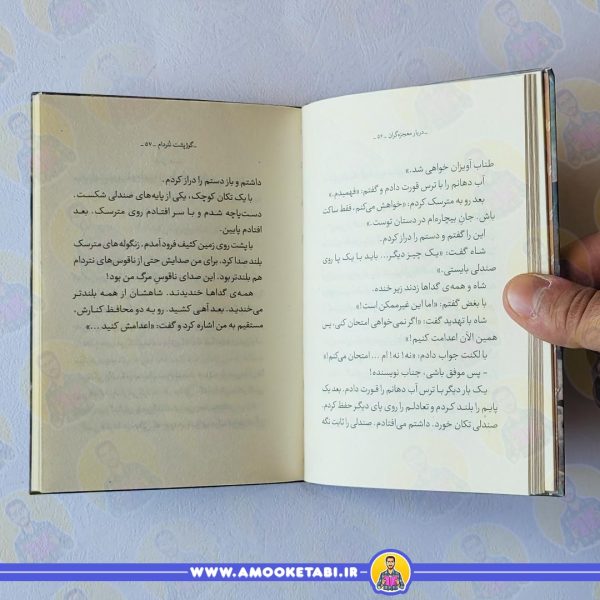 ـ دربار معجزه‌گران ـ ۵۶ ـ
طناب آویزان خواهی شد.»
آب دهانم را با ترس قورت دادم و گفتم: «فهمیدم.»
بعد رو به مترسک کردم: «خواهش می‌کنم، فقط ساکت
باش. جانِ بیچاره‌ام در دستان توست.»
این را گفتم و دستم را دراز کردم.
شاه گفت: «یک چیز دیگر... باید با یک پا روی
صندلی بایستی.»
شاه و همه‌ی گداها زدند زیر خنده.
با بغض گفتم: «اما این غیرممکن است!»
شاه با تهدید گفت: «اگر نمی‌خواهی امتحان کنی، پس
همین الآن اعدامت کنیم!»
با لکنت جواب دادم: «نه! نه! ام ... امتحان می‌کنم!»
- پس موفق باشی، جناب نویسنده!
یک بار دیگر با ترس آب دهانم را قورت دادم. بعد یک
پایم را بلند کردم و تعادلم را روی پای دیگر حفظ کردم.
صندلی تکان خورد. داشتم می‌افتادم. صندلی را ثابت نگه
ـ گوژپشت نتردام ـ ۵۷ ـ
داشتم و باز دستم را دراز کردم.
با یک تکان کوچک، یکی از پایه‌های صندلی شکست.
دست‌پاچه شدم و با سر افتادم روی مترسک. بعد
افتادم پایین.
با پشت روی زمین کثیف فرود آمدم. زنگوله‌های مترسک
بلند صدا کرد. برای من صدایش حتی از ناقوس‌های نتردام
هم بلندتر بود. این صدای ناقوسِ مرگ من بود!
همه‌ی گداها خندیدند. شاهشان از همه بلندتر
می‌خندید. بعد آهی کشید. رو به دو محافظ کنارش،
مستقیم به من اشاره کرد و گفت: «اعدامش کنید ...»
WWW.AMOOKETABI.IR